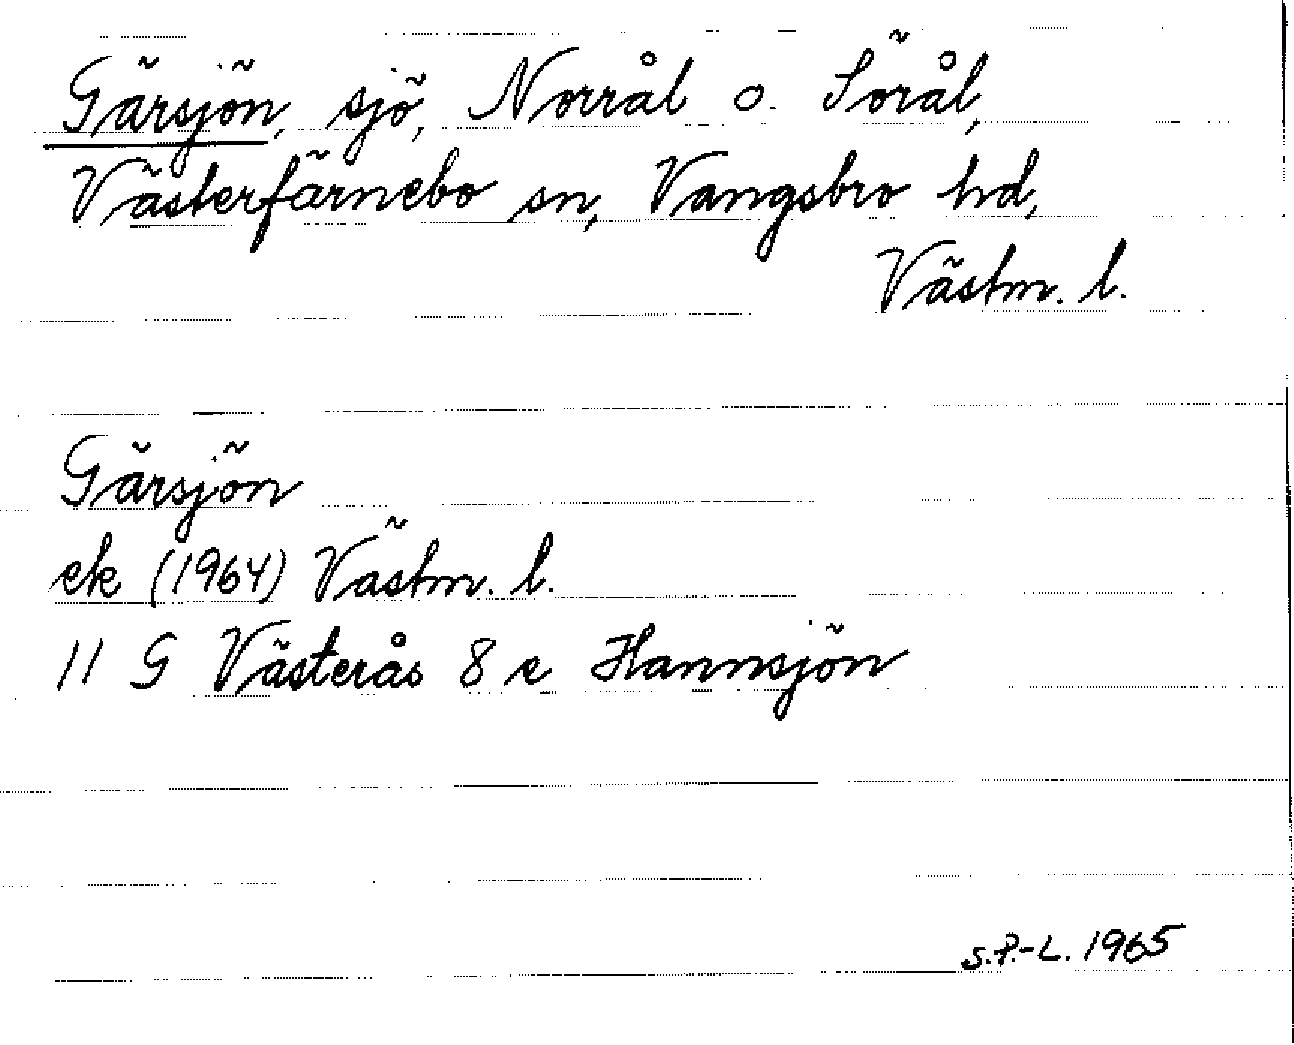 Gärsjön, sjö, Norrål o. Sörål,
Västerfärnebo sn, Vangsbro hd,
Västm. l.
Gärsjön
ek (1964) Västm. l.
11 G Västerås 8 e Hannsjön
S.P.-L. 1965